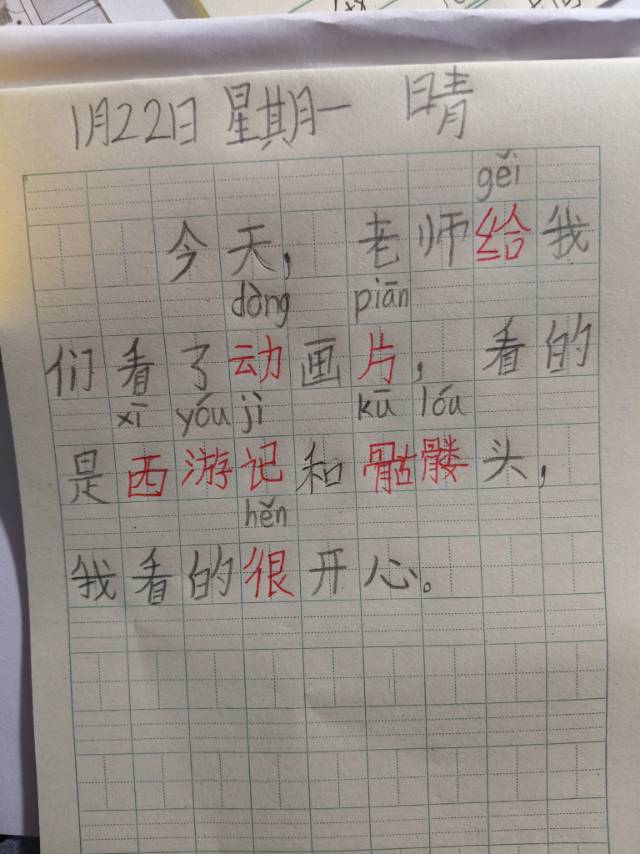 1月22日 星期一 晴
gěi
今天, 老师给我
dòng piān
们看了动画片, 看的
xī yóu jì kū lóu
是西游记和骷髅头,
hěn
我看的很开心。